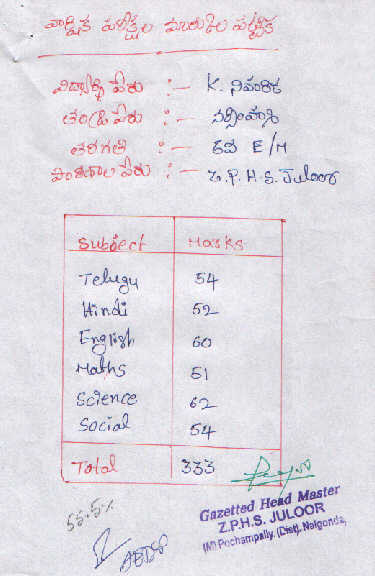 వార్షిక పరీక్షల మార్కుల పట్టిక
విద్యార్థి పేరు :- K. నిహారిక
తండ్రి పేరు :- నర్సింహ
తరగతి :- 8వ E/M
పాఠశాల పేరు :- Z.P.H.S. Juloor
Subject Marks
Telugu 54
Hindi 52
English 60
Maths 51
Science 62
Social 54
Total 333
55.5%
Gazetted Head Master
Z.P.H.S. JULOOR
(M) Pochampally, (Dist). Nalgonda,